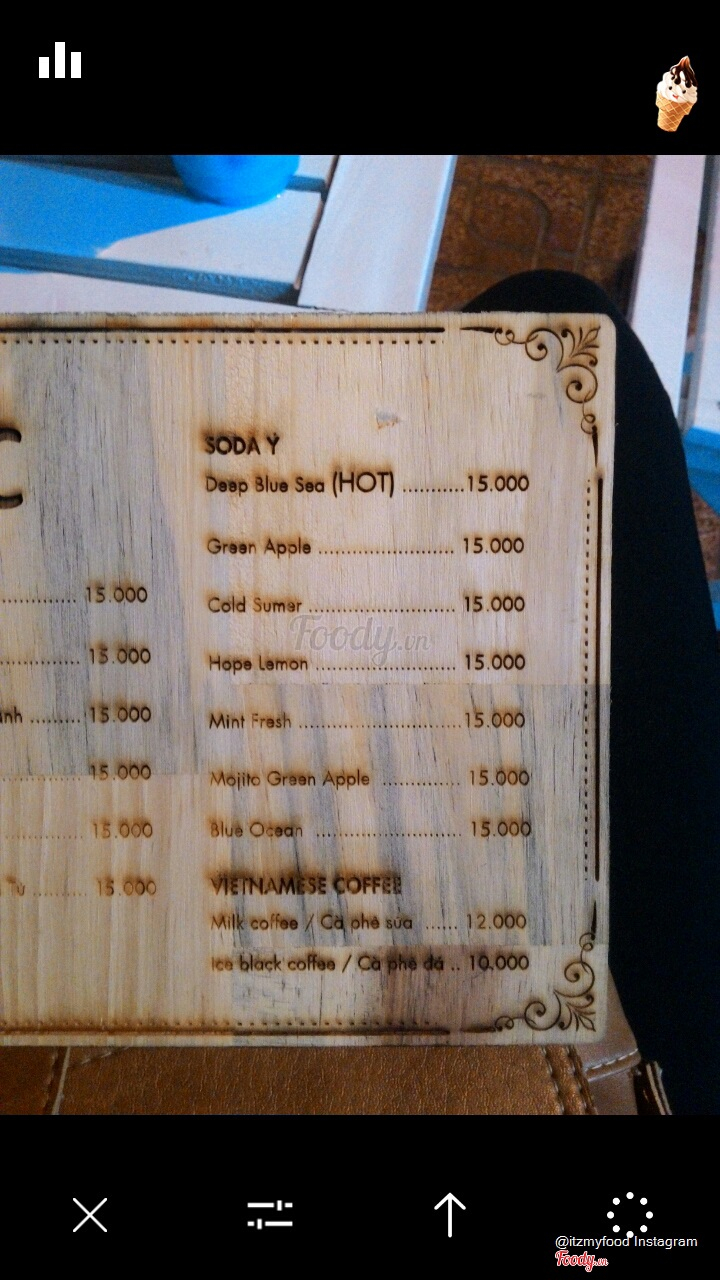 C
15.000
15.000
ành ......... 15.000
15.000
15.000
Tư ......... 15.000
SODA Ý
Deep Blue Sea (HOT) ...........15.000
Green Apple ........................ 15.000
Cold Sumer .......................... 15.000
Hope Lemon ......................... 15.000
Mint Fresh .............................15.000
Mojito Green Apple .............. 15.000
Blue Ocean .......................... 15.000
VIETNAMESE COFFEE
Milk coffee / Cà phê sữa ...... 12.000
Ice black coffee / Cà phê đá .. 10.000
Foody.vn
@itzmyfood Instagram
Foody.vn